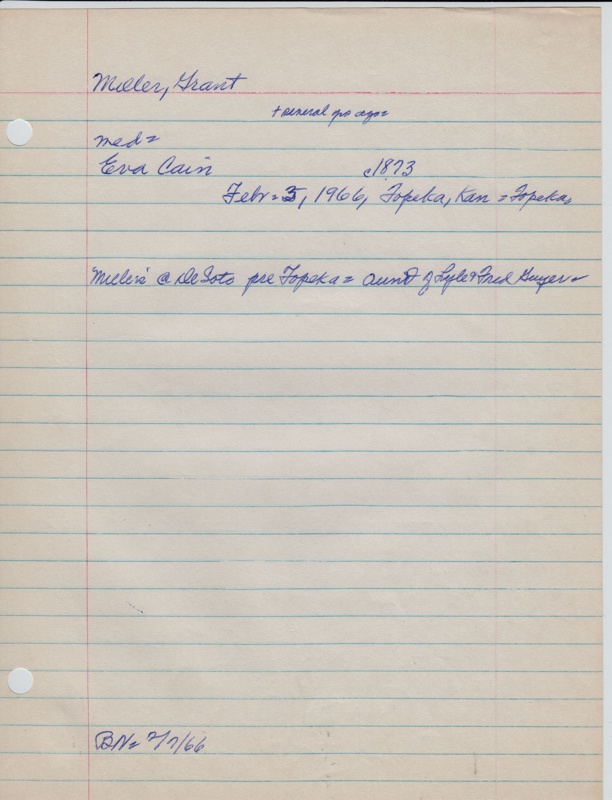 Miller, Grant
+ several yrs ago=
med=
Eva Cain c1873
Febr= 3, 1966, Topeka, Kan = Topeka=
Millers @ DeSoto pre Topeka = aunt of Lyle & Fred Guyer=
BN= 2/7/66